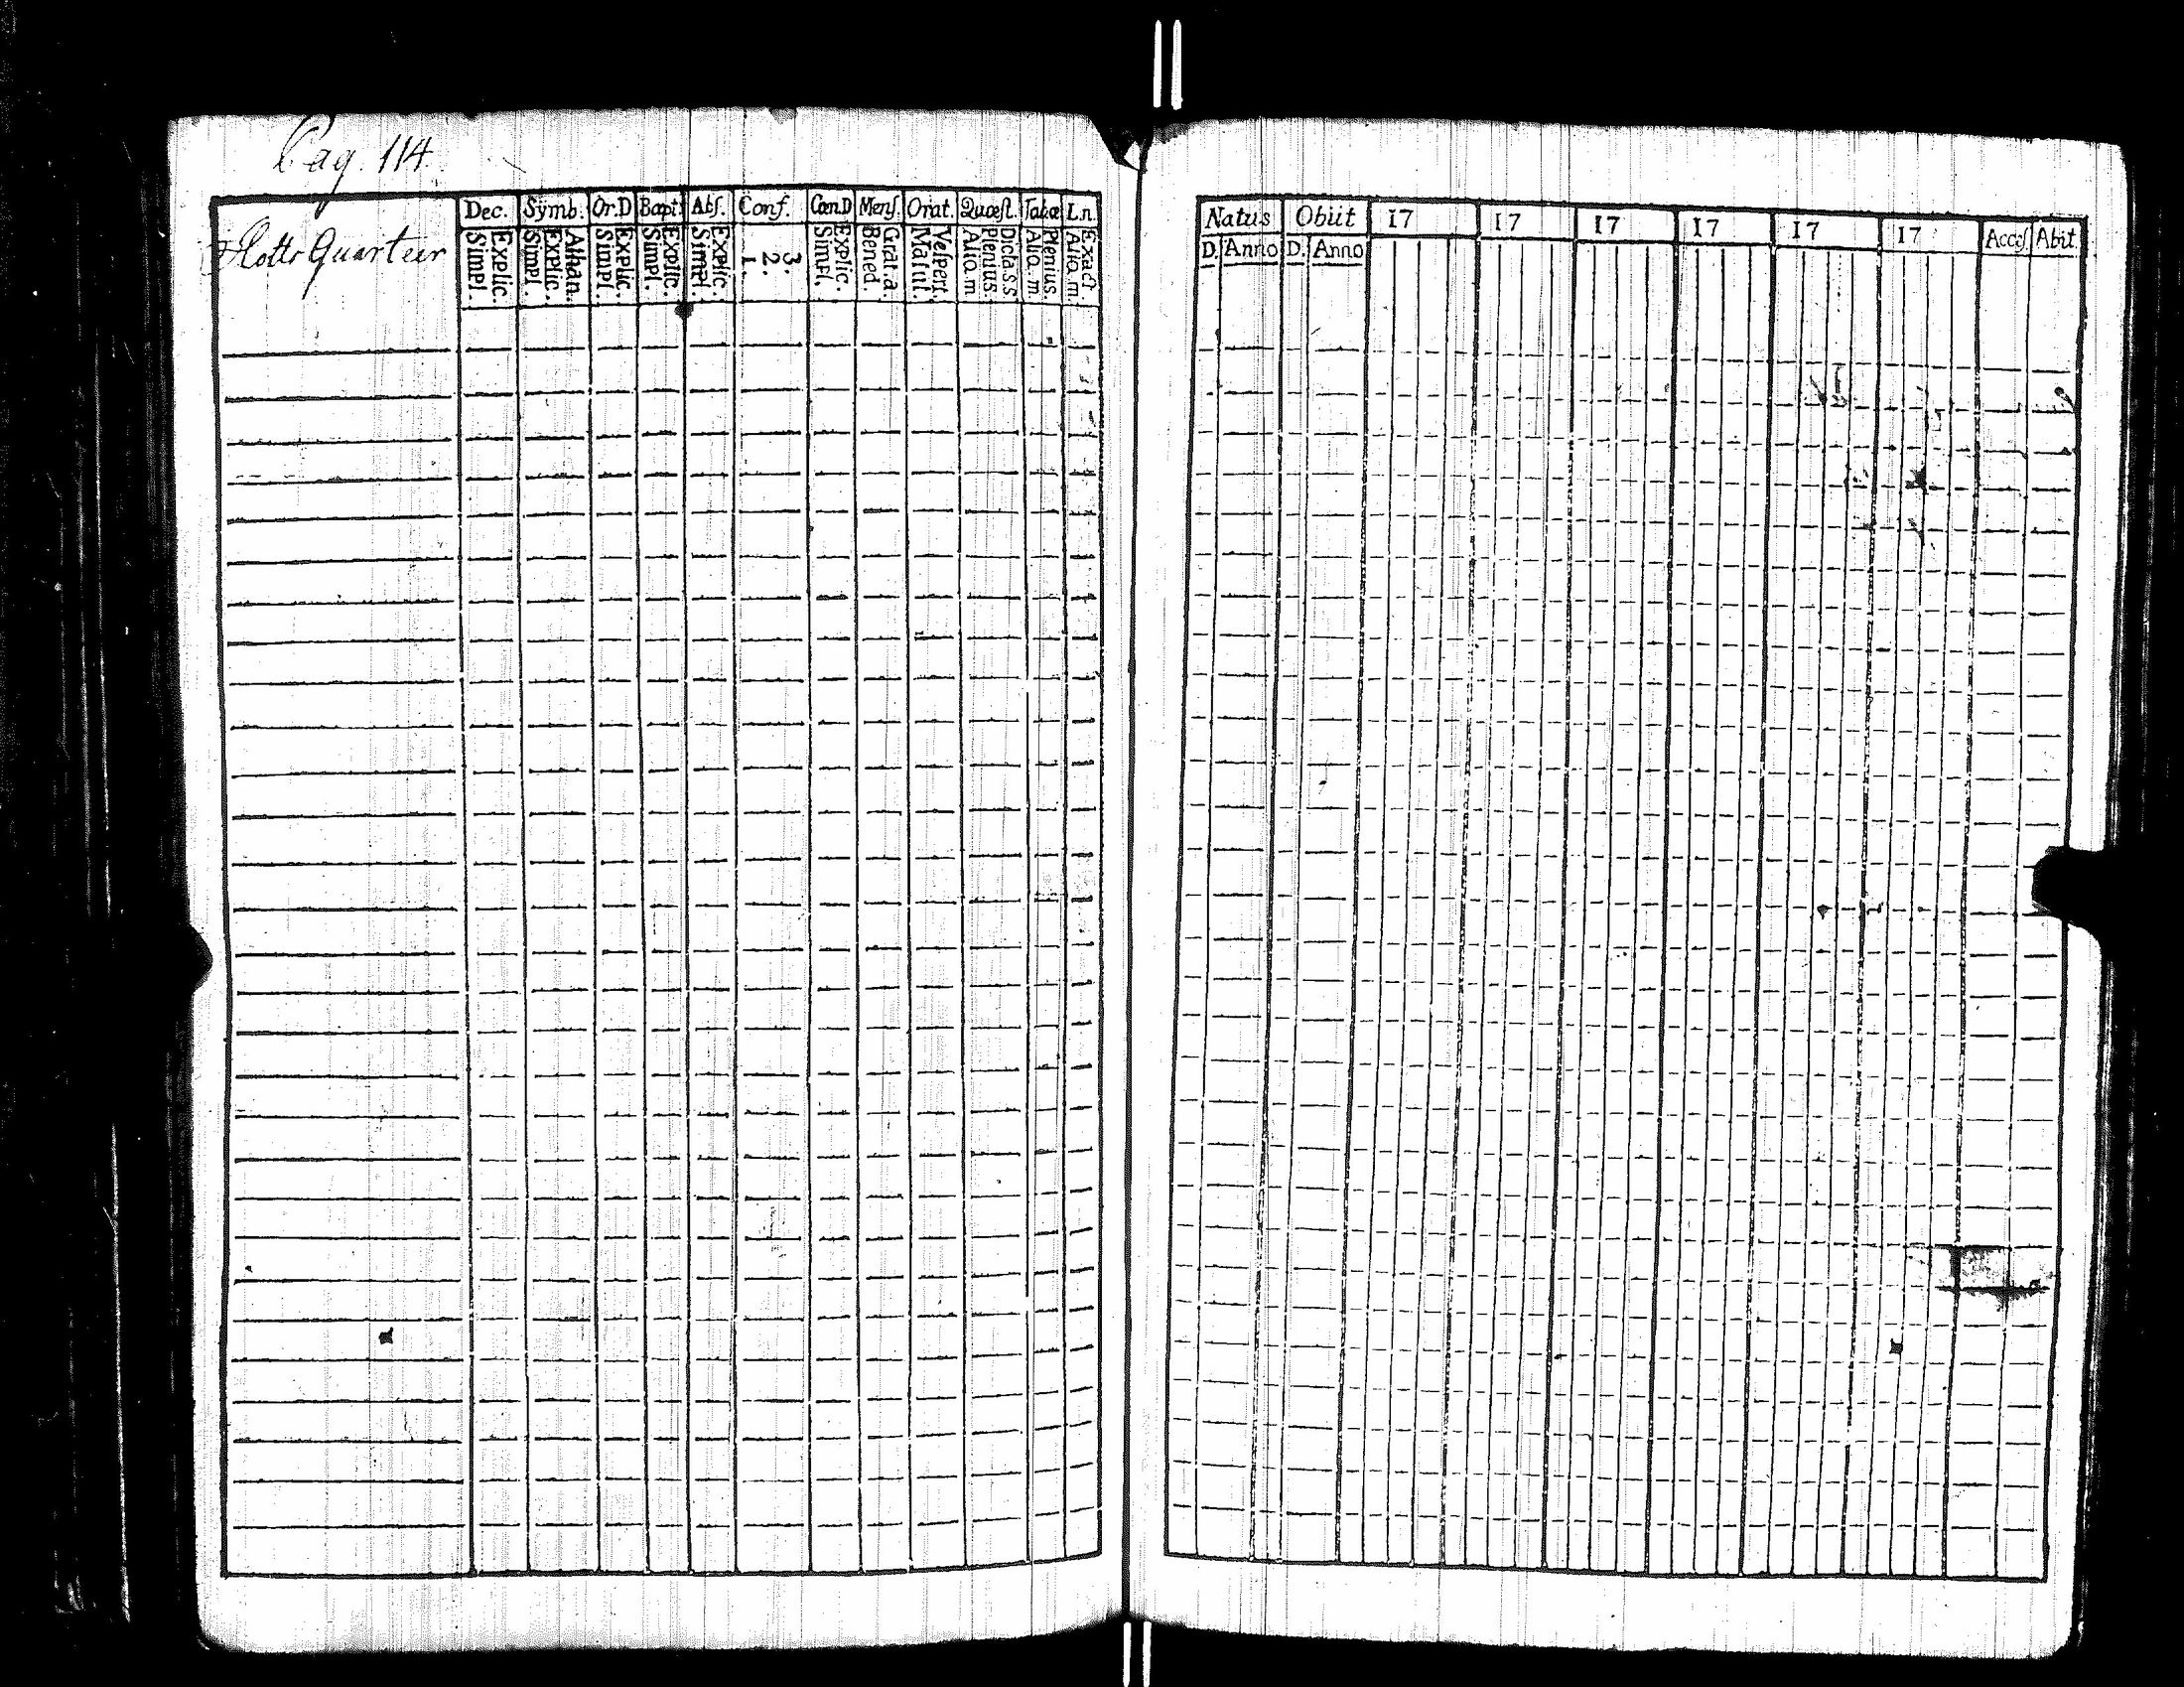 Pag. 114.
Slotts Quarteer
Dec. Symb. Or.D Bapt. Abſ. Conf. Cœn.D Menſ. Orat. Quæst. Tabæ L.n.
Explic. Simpl. Athan. Explic. Simpl. Explic. Simpl. Explic. Simpl. Explic. Simpl. 3. 2. 1. Explic. Simpl. Grat.a. Bened. Veſpert. Matut. Dicta.S.S. Plenius. Aliq.m Plenius. Aliq.m. Exact. Aliq.m.
Natus Obiit 17 17 17 17 17 17 Acceſ. Abit.
D. Anno D. Anno